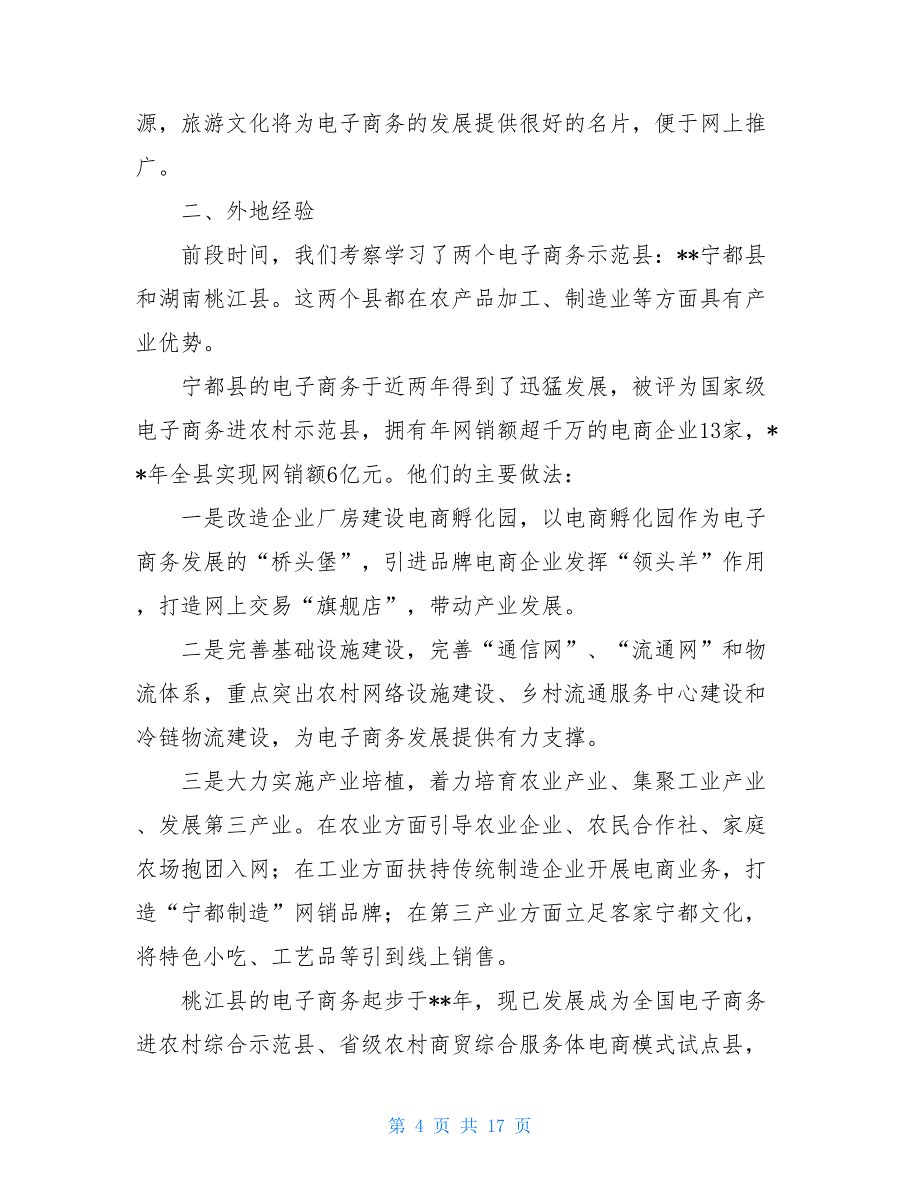 源，旅游文化将为电子商务的发展提供很好的名片，便于网上推
广。
二、外地经验
前段时间，我们考察学习了两个电子商务示范县：**宁都县
和湖南桃江县。这两个县都在农产品加工、制造业等方面具有产
业优势。
宁都县的电子商务于近两年得到了迅猛发展，被评为国家级
电子商务进农村示范县，拥有年网销额超千万的电商企业13家，*
*年全县实现网销额6亿元。他们的主要做法：
一是改造企业厂房建设电商孵化园，以电商孵化园作为电子
商务发展的“桥头堡”，引进品牌电商企业发挥“领头羊”作用
，打造网上交易“旗舰店”，带动产业发展。
二是完善基础设施建设，完善“通信网”、“流通网”和物
流体系，重点突出农村网络设施建设、乡村流通服务中心建设和
冷链物流建设，为电子商务发展提供有力支撑。
三是大力实施产业培植，着力培育农业产业、集聚工业产业
、发展第三产业。在农业方面引导农业企业、农民合作社、家庭
农场抱团入网；在工业方面扶持传统制造企业开展电商业务，打
造“宁都制造”网销品牌；在第三产业方面立足客家宁都文化，
将特色小吃、工艺品等引到线上销售。
桃江县的电子商务起步于**年，现已发展成为全国电子商务
进农村综合示范县、省级农村商贸综合服务体电商模式试点县，
第 4 页 共 17 页